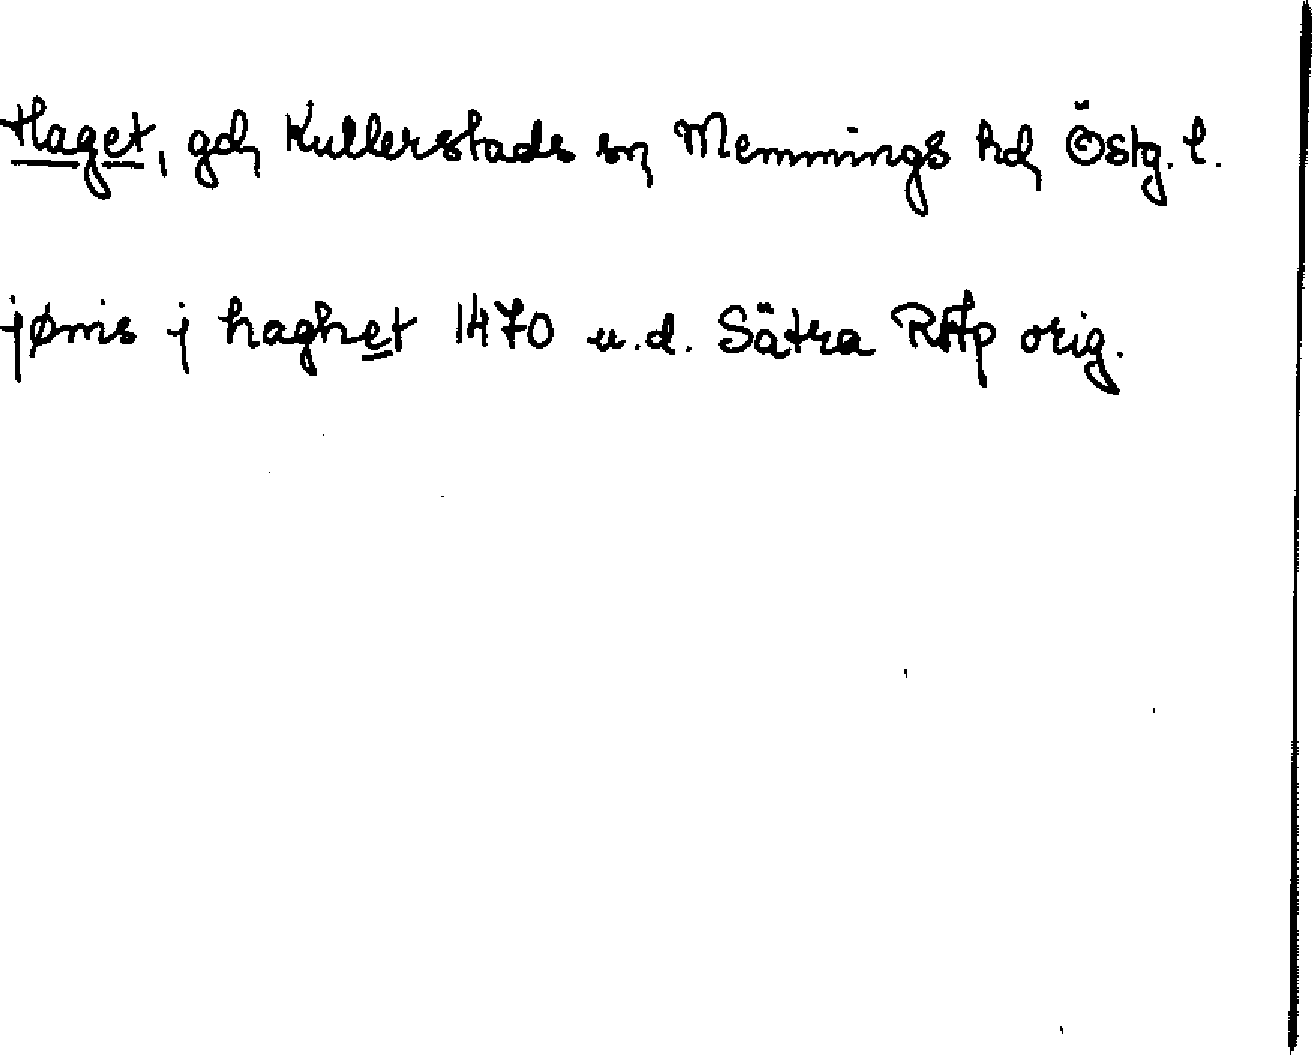 Haget, gd, Kullerstads sn, Memmings hd, Östg. l.
jønis j haghet 1470 u.d. Sätra RAp orig.